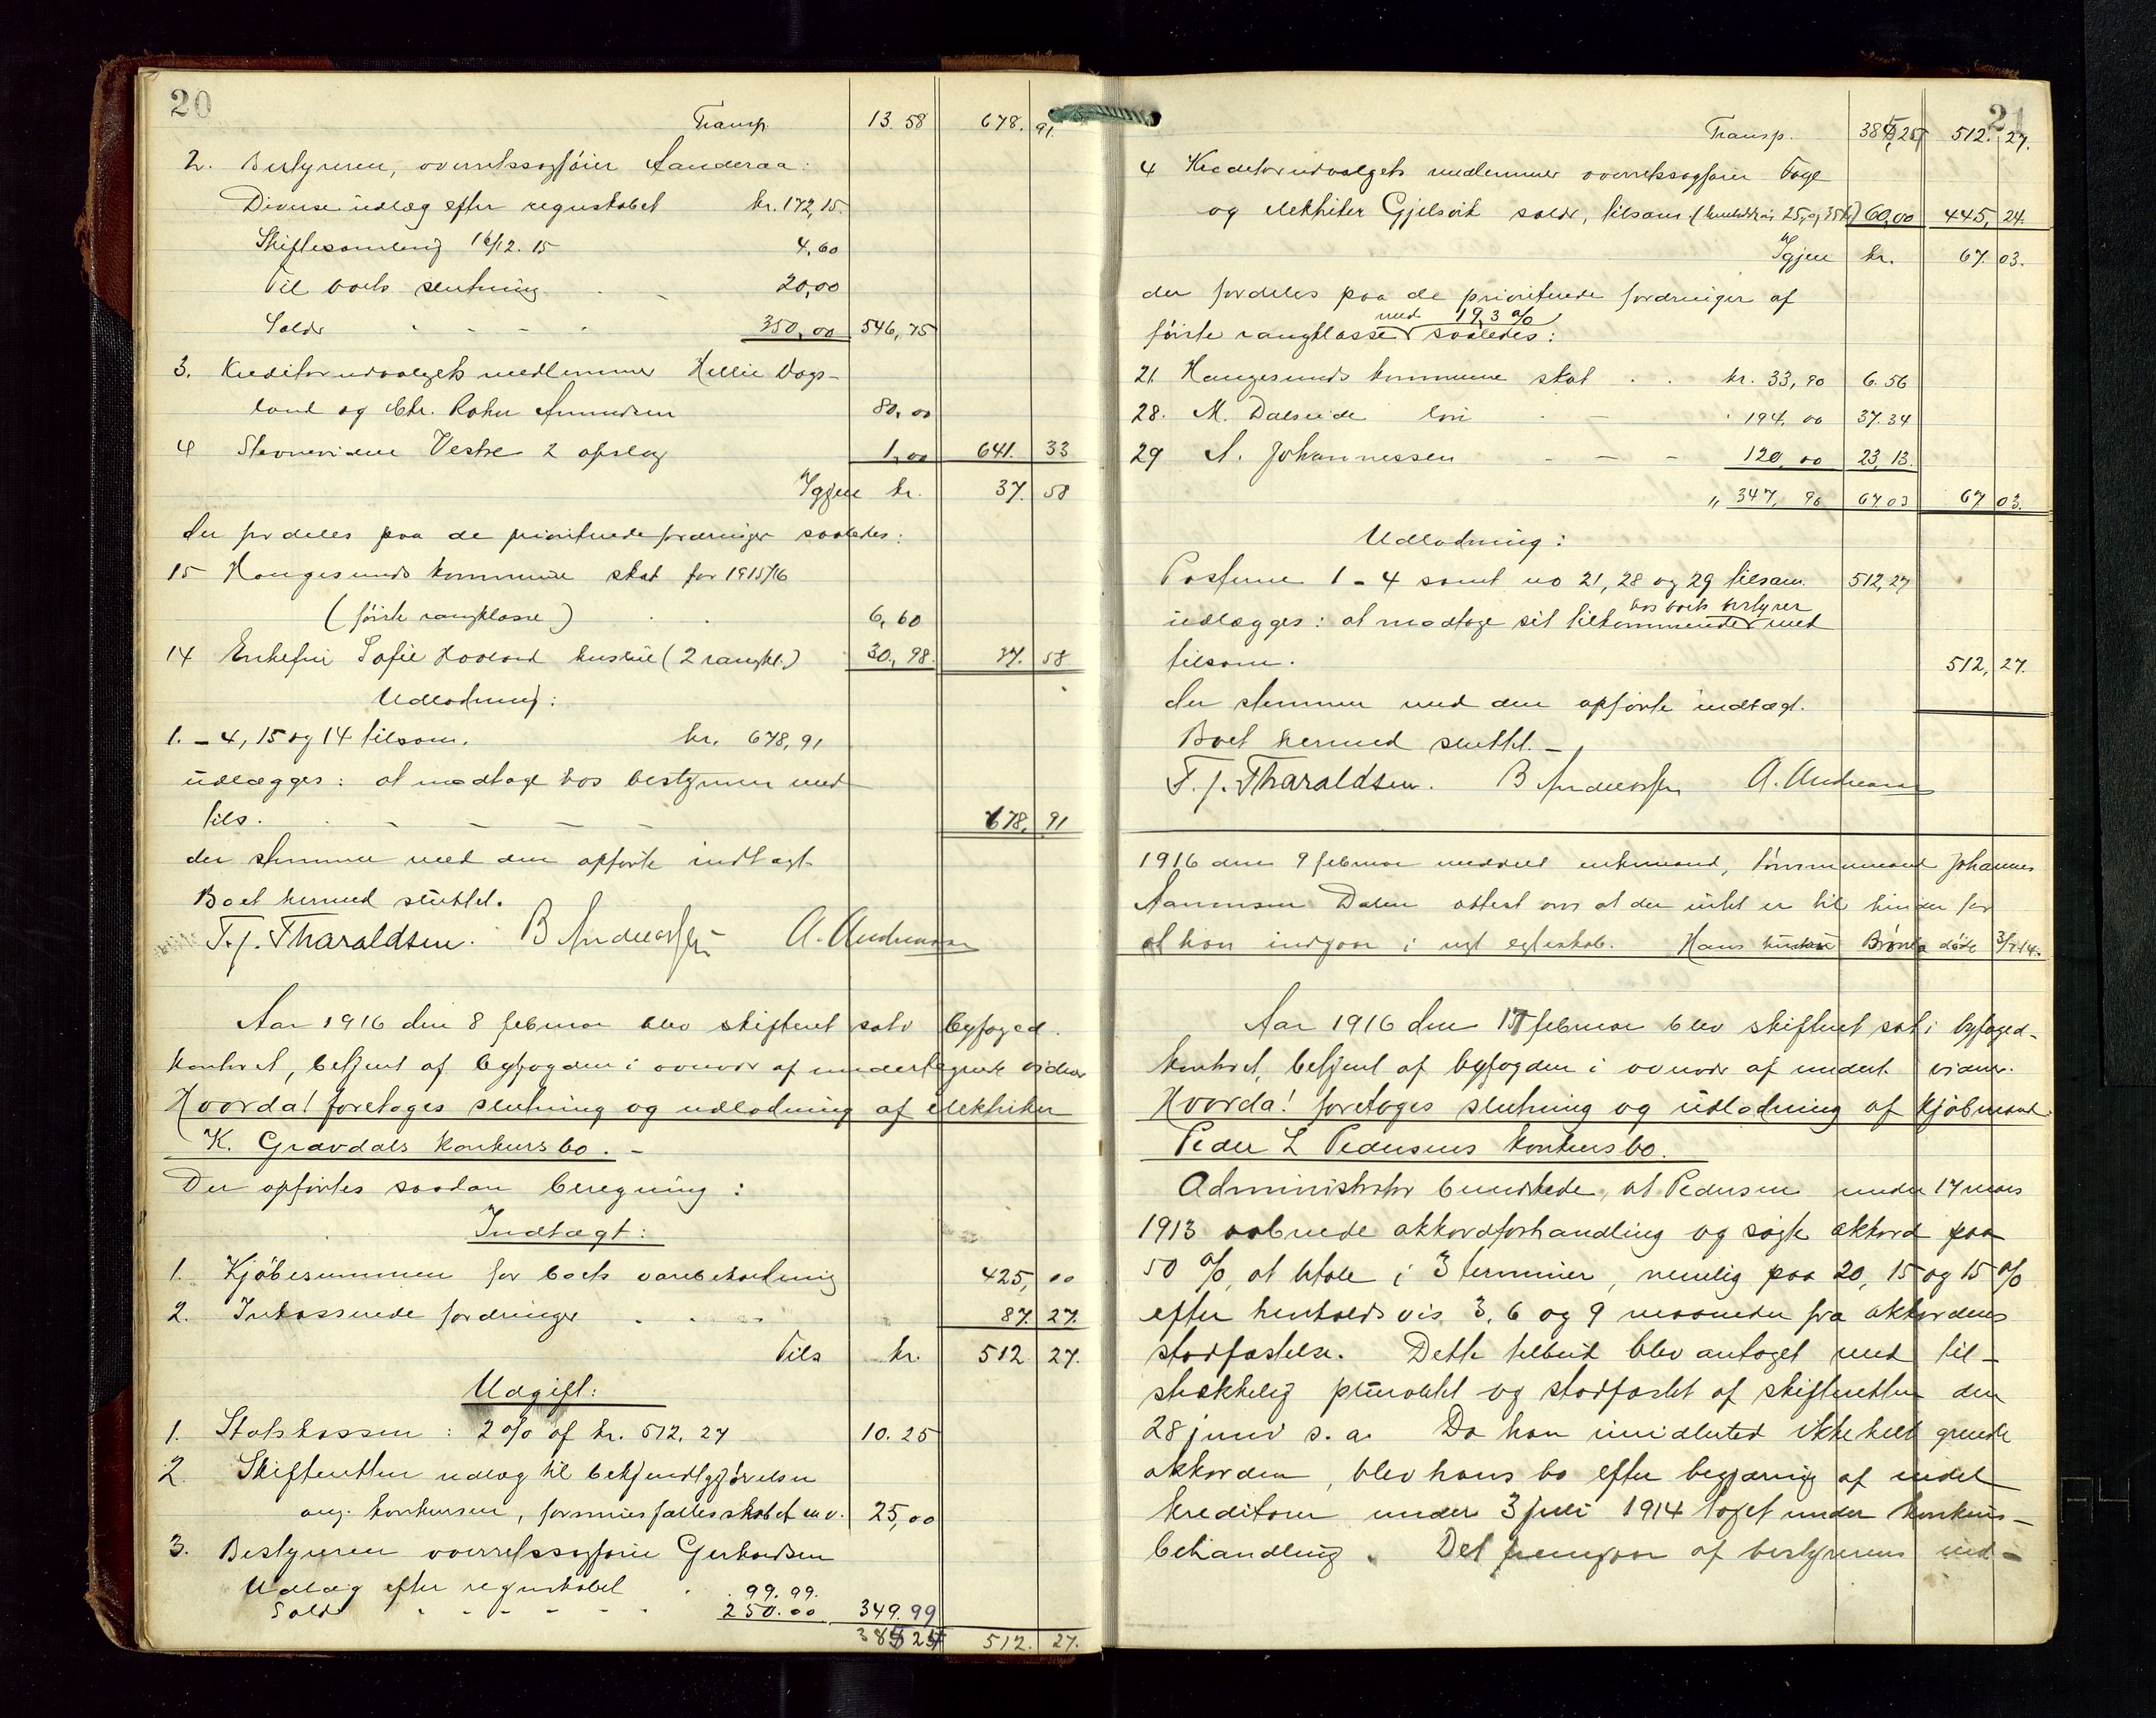 20
Transp. 13.58 678.91
2. Bestyreren, overretssagfører Aanderaa:
Diverse udlæg efter regnskabet kr. 172,15.
Skiftesamling 16/12.15 4,60
Til boets slutning 20,00
Salær 350,00 546,75
3. Kreditorudvalgets medlemmer Hellie Vags-
land og Chr. Rohn Amundsen 80,00
4 Stevnevidne Vestre 2 opslag 1,00 641.33
Igjen kr. 37.58
der fordeles paa de prioriterede fordringer saaledes:
15 Haugesunds kommune skat for 1915/16
(første rangklasse) 6,60
14 Enkefru Sofie Haaland husleie (2 rangkl.) 30,98. 37.58
Udlodning:
1.-4, 15 og 14 tilsam. kr. 678,91
udlægges: at modtage hos bestyreren med
tils. 678,91
der stemmer med den opførte indtægt.
Boet hermed sluttet.
T. J. Tharaldsen. B Anderssen A. Andreassen
Aar 1916 den 8 februar blev skifteret sat i byfoged-
kontoret, betjent af byfogden i overvær af undertegnede vidner
Hvorda! foretoges slutning og udlodning af elektriker
K. Gravdals konkursbo.-
Der opførtes saadan beregning:
Indtægt:
1. Kjøbesummen for boets varebeholdning 425,00
2. Inkasserede fordringer 87.27.
Tils kr. 512 27.
Udgift:
1. Statskassen: 2 % af kr. 512,27 10.25
2. Skifteretten udlæg til bekjendtgjørelser
ang. konkursen, formuesfællesskabet m.v. 25,00
3. Bestyreren overretssagfører Gerhardsen
Udlæg efter regnskabet 99.99.
Salær 250.00 349.99
385 24 512. 27.
21
Transp. 385,25 512.27.
4 Kreditorudvalgets medlemmer overretssagfører Fage
og elektriker Gjelsvik salær, tilsam. (henholdsvis 25 og 35 kr) 60,00 445,24.
Igjen kr. 67.03.
der fordeles paa de prioriterede fordringer af
første rangklasse med 19,3 % saaledes:
21 Haugesunds kommune skat kr. 33,90 6.56
28. M. Dalseide løn 194,00 37.34
29 A. Johannessen 120,00 23,13.
" 347,90 67.03 67 03.
Udlodning:
Posterne 1-4 samt no 21, 28 og 29 tilsam. 512,27
udlægges: at modtage sit tilkommende hos boets bestyrer med
tilsam. 512,27.
der stemmer med den opførte indtægt.
Boet hermed sluttet.-
T. J. Tharaldsen. B Anderssen A. Andreassen
1916 den 9 februar meddelt enkemand, tømmermand Johannes
Aanensen Dalen attest om at der intet er til hinder for
at han indgaar i nyt egteskab. Hans hustru Brønla døde 3/7.14.
Aar 1916 den 17 februar blev skifteret sat i byfoged-
kontoret, betjent af byfogden i overvær af undert. vidner.
Hvorda! foretoges slutning og udlodning af kjøbmand
Peder L Pedersens konkursbo.
Administrator bemerkede, at Pedersen under 17 mars
1913 aabnede akkordforhandling og søgte akkord paa
50 %, at betale i 3 terminer, nemlig paa 20, 15 og 15 %
efter henholdsvis 3, 6 og 9 maaneder fra akkordens
stadfæstelse. Dette tilbud blev antaget med til-
strækkelig pluralitet og stadfæstet af skifteretten den
28 juni s. a. Da han imidlertid ikke helt greiede
akkorden, blev hans bo efter begjæring af endel
kreditorer under 3 juli 1914 taget under konkurs-
behandling. Det fremgaar af bestyrerens ind-